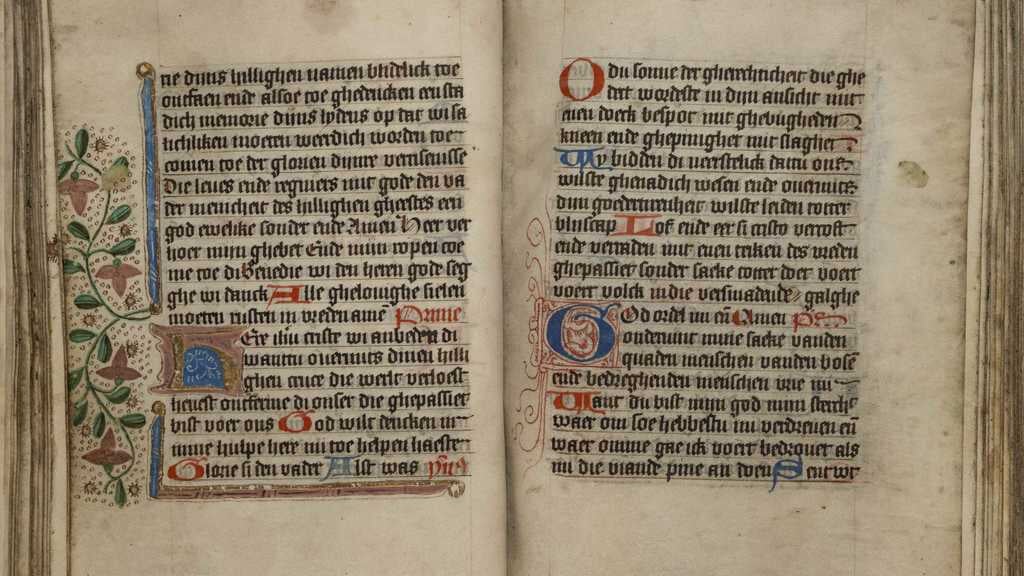 ne dijns hillighen namen blidelick toe
ontfaen ende alsoe toe ghedencken en sta
dich memorie dijns lydens op dat wi sa
lichliken moeten weerdich worden toe
comen toe der glorien dijnre verrisenisse
Die leues ende regniers mit gode den va
der in eenicheit des hillighen gheestes een
god ewelike sonder ende Amen Heer ver
hoer mijn ghebet Ende mijn ropen coe
me toe di Benedie wi den heren gode seg
ghe wi danck Alle ghelouighe sielen
moeten rusten in vreden ame Prime
Here ihu criste wi anbeden di
wantu ouermits dinen hilli
ghen cruce die werlt verloest
heuest ontferme di onser die ghepassiet
bist voer ons God wilt dencken in
mine hulpe here mi toe helpen haeste
Glorie si den vader Alst was
O du sonne der gherechticheit die ghe
dect wordeste in dijn ansicht mit
enen doeck bespot mit ghebughenden
kneen ende ghepinighet mit slaghen
Wy bidden di neerstelick dattu ons
wilste ghenadich wesen ende ouermits
dijn goedertierenheit wilste leiden totter
blijscap Lof ende eer si cristo vercoft
ende verraden mit enen teiken des vreden
ghepassiet sonder sacke totter doet voert
voert volck in die versmadende galghe
God ordel mi en Amen
onderunt mine sacke vanden
quaden menschen vanden bose
ende bedreghenden menschen vrie mi
Want du bist mijn god mijn sterch
waer om soe hebbestu mi verdreuen en
waer omme gae ick voert bedrouet als
mi die viande pine an doen Sent wt